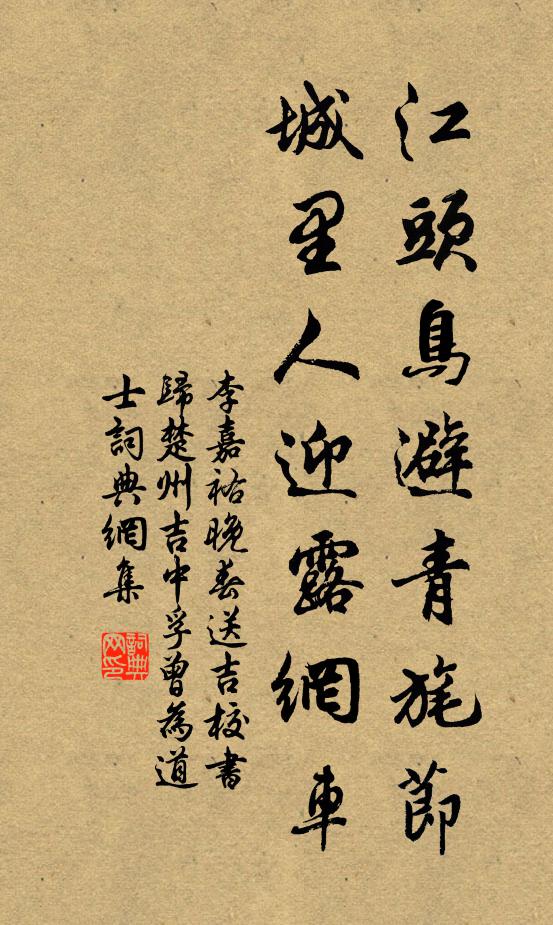 江頭鳥避青旄節
城里人迎露網車
李嘉祐晚春送吉校書
歸楚州吉中孚曾為道
士詞典網集
詞典
网印